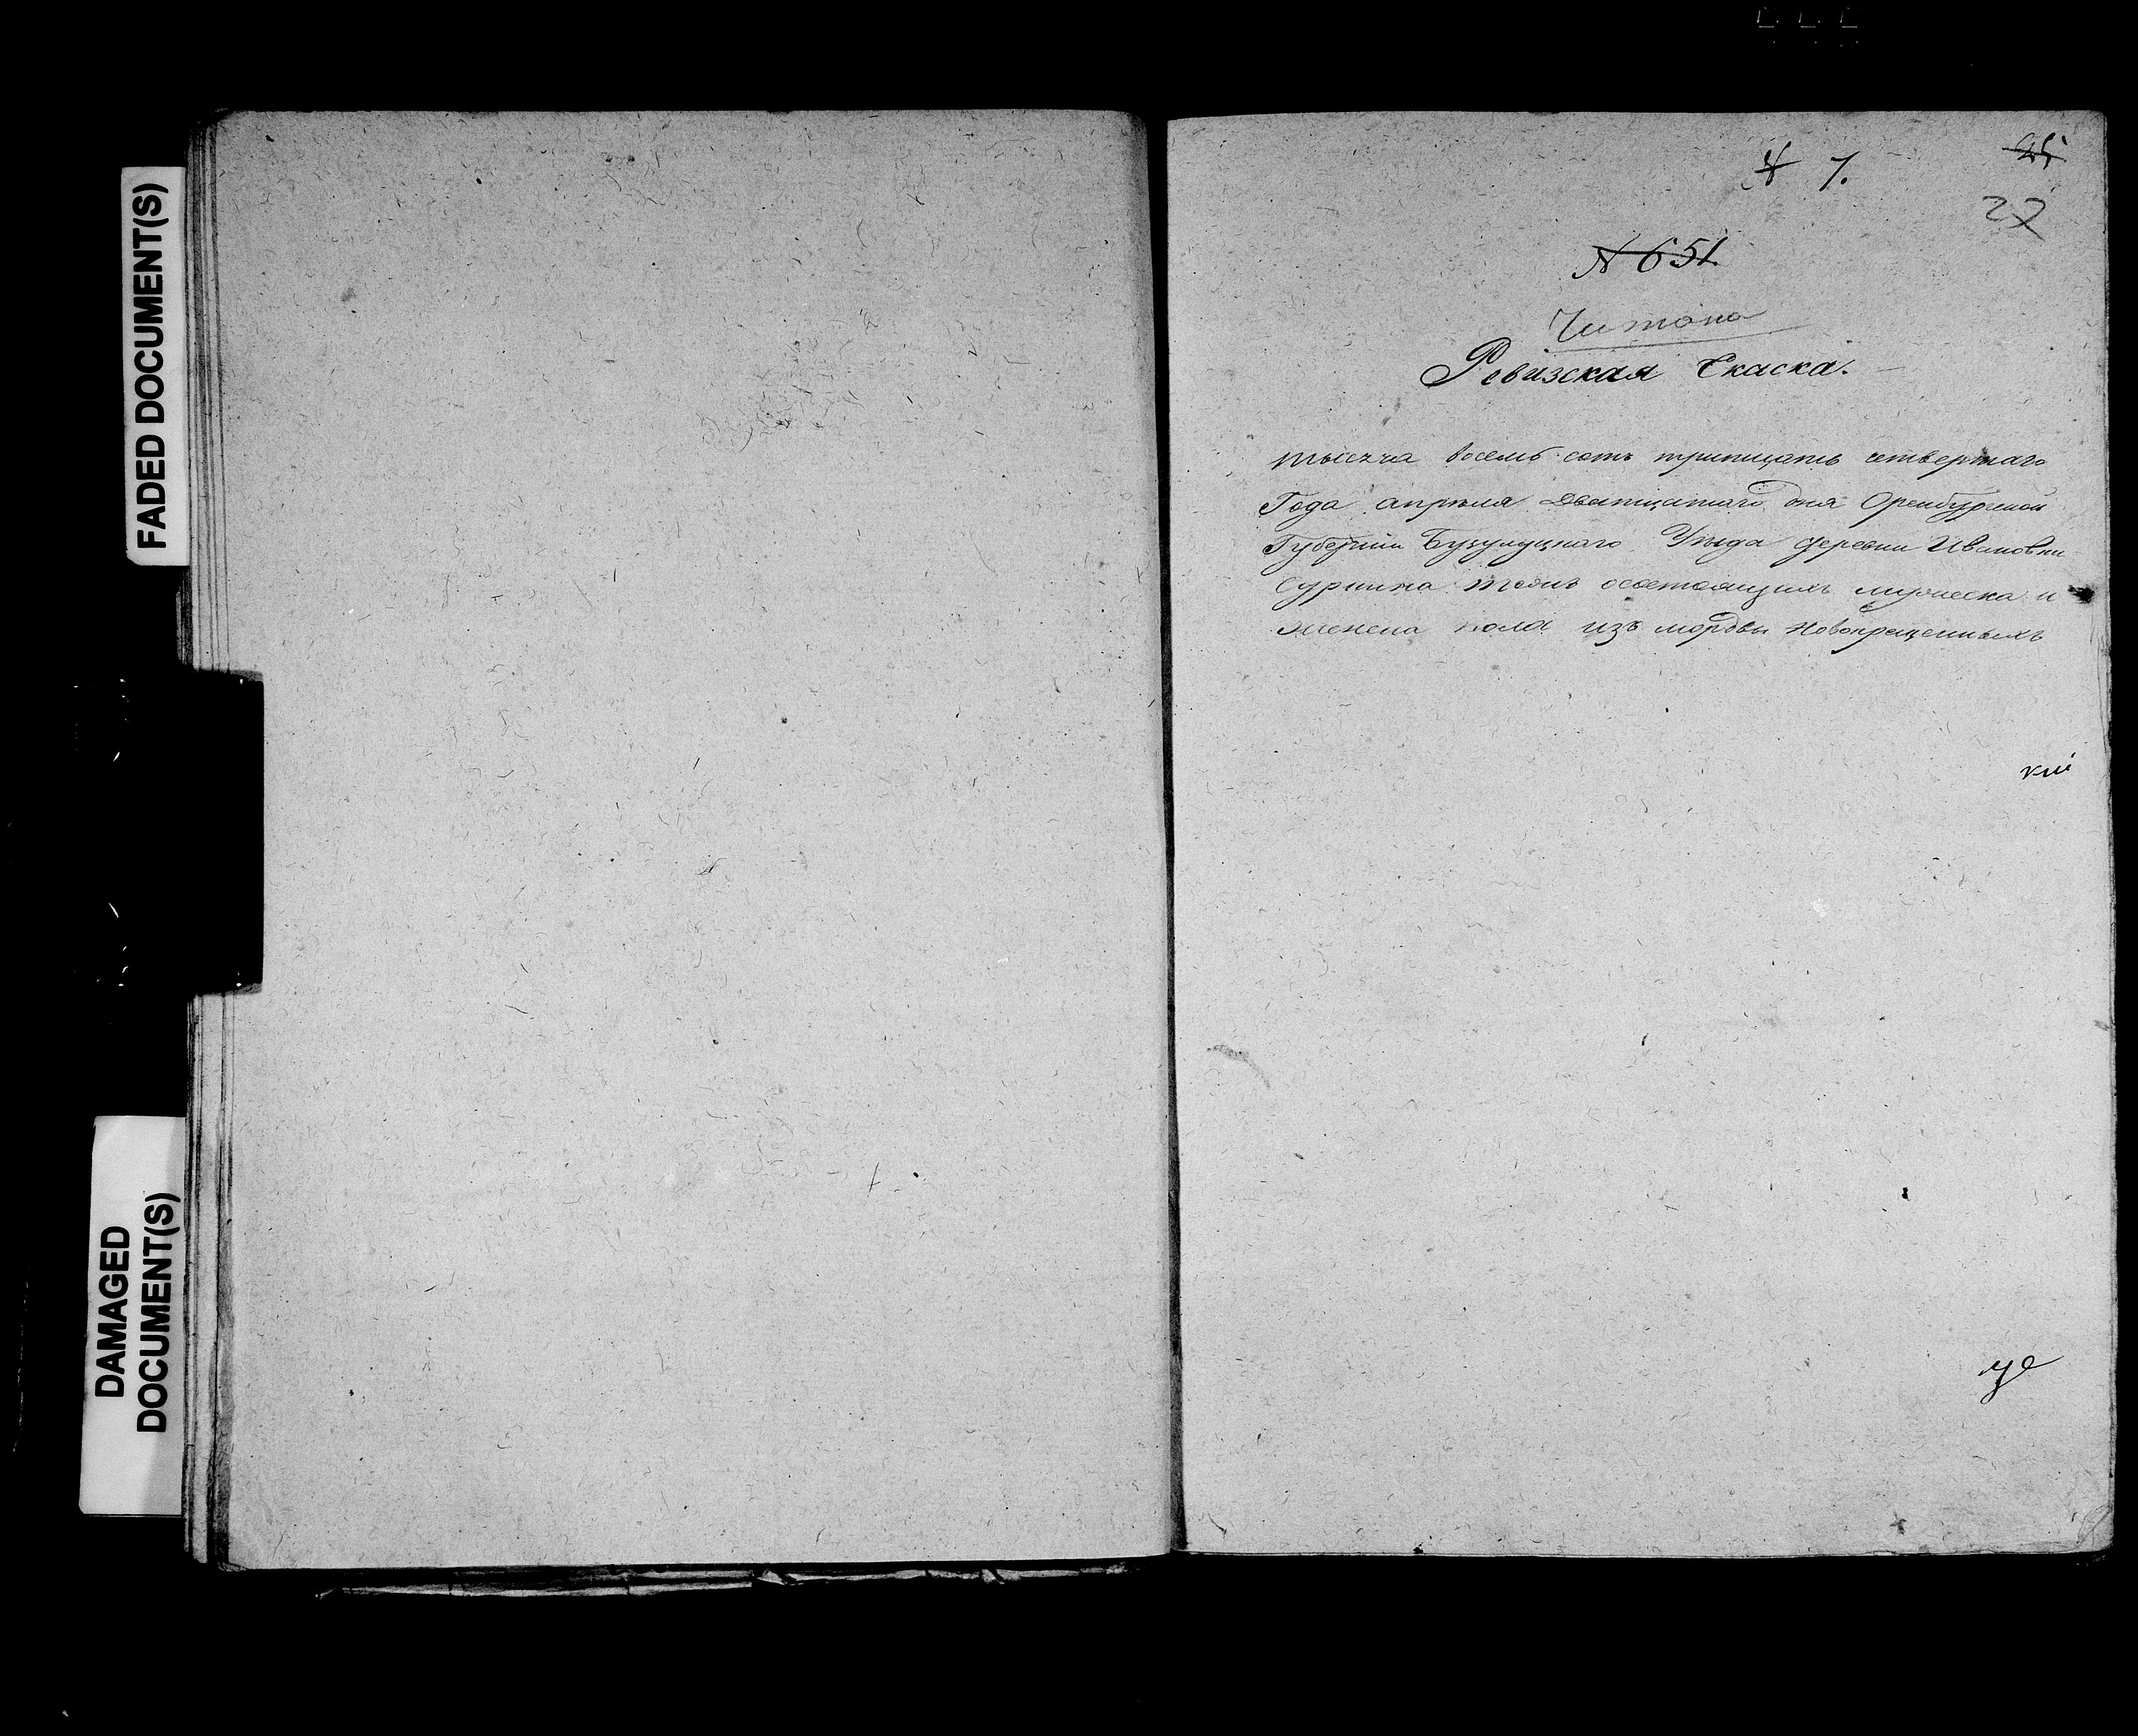 FADED DOCUMENT(S)
DAMAGED
DOCUMENT(S)
№ 7.
25
27
№ 651.
Читана
Ревизская Скаска.
тысеча восемь сотъ тритцать четвертаго
Года апреля дватцатаго дня Оренбургской
Губернии Бузулуцкаго Уѣзда деревни Ивановки
Суркина тожъ осостоящихъ мужеска и
женска пола изъ мордвы Новокрещенныхъ
кій